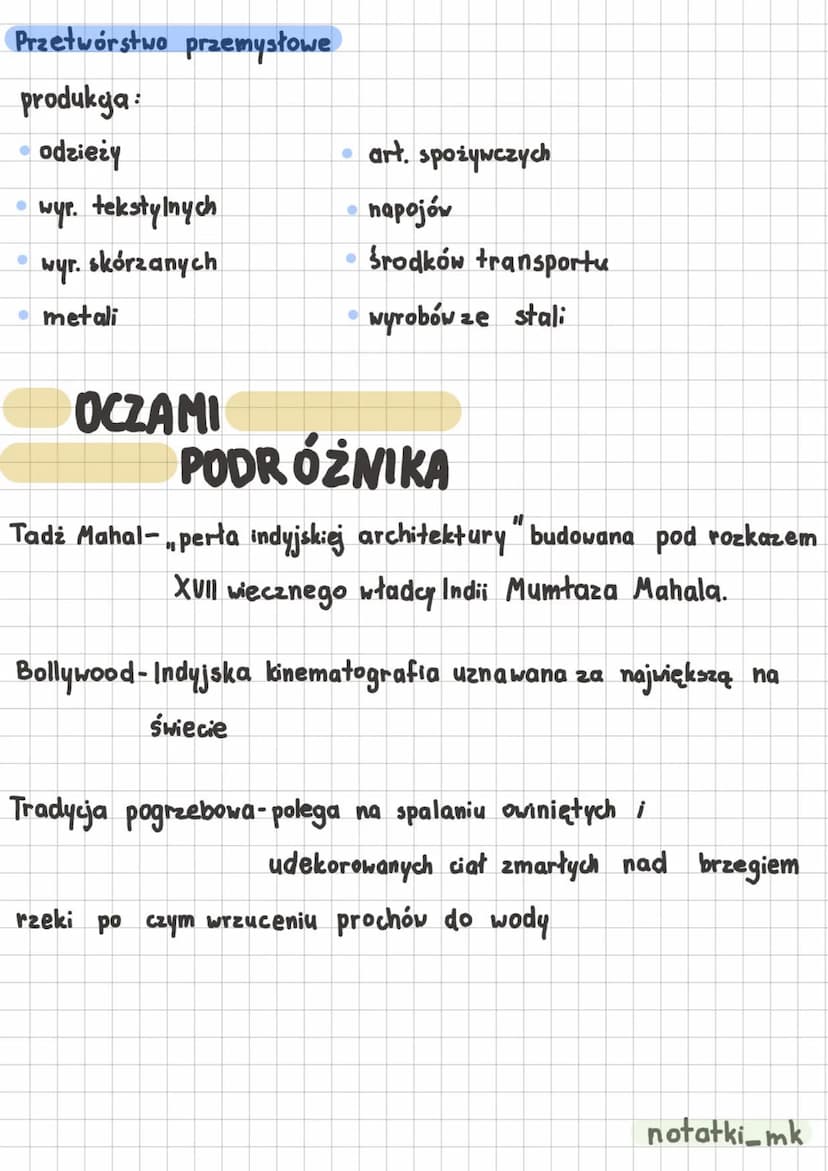 Przetwórstwo przemysłowe
produkcja:
• odzieży
• wyr. tekstylnych
• wyr. skórzanych
• metali
• art. spożywczych
• napojów
• środków transportu
• wyrobów ze stali
OCZAMI
PODRÓŻNIKA
Tadź Mahal- „perła indyjskiej architektury" budowana pod rozkazem
XVII wiecznego władcy Indii Mumtaza Mahala.
Bollywood-Indyjska kinematografia uznawana za największą na
świecie
Tradycja pogrzebowa-polega na spalaniu owiniętych i
udekorowanych ciał zmarłych nad brzegiem
rzeki po czym wrzuceniu prochów do wody
notatki_mk